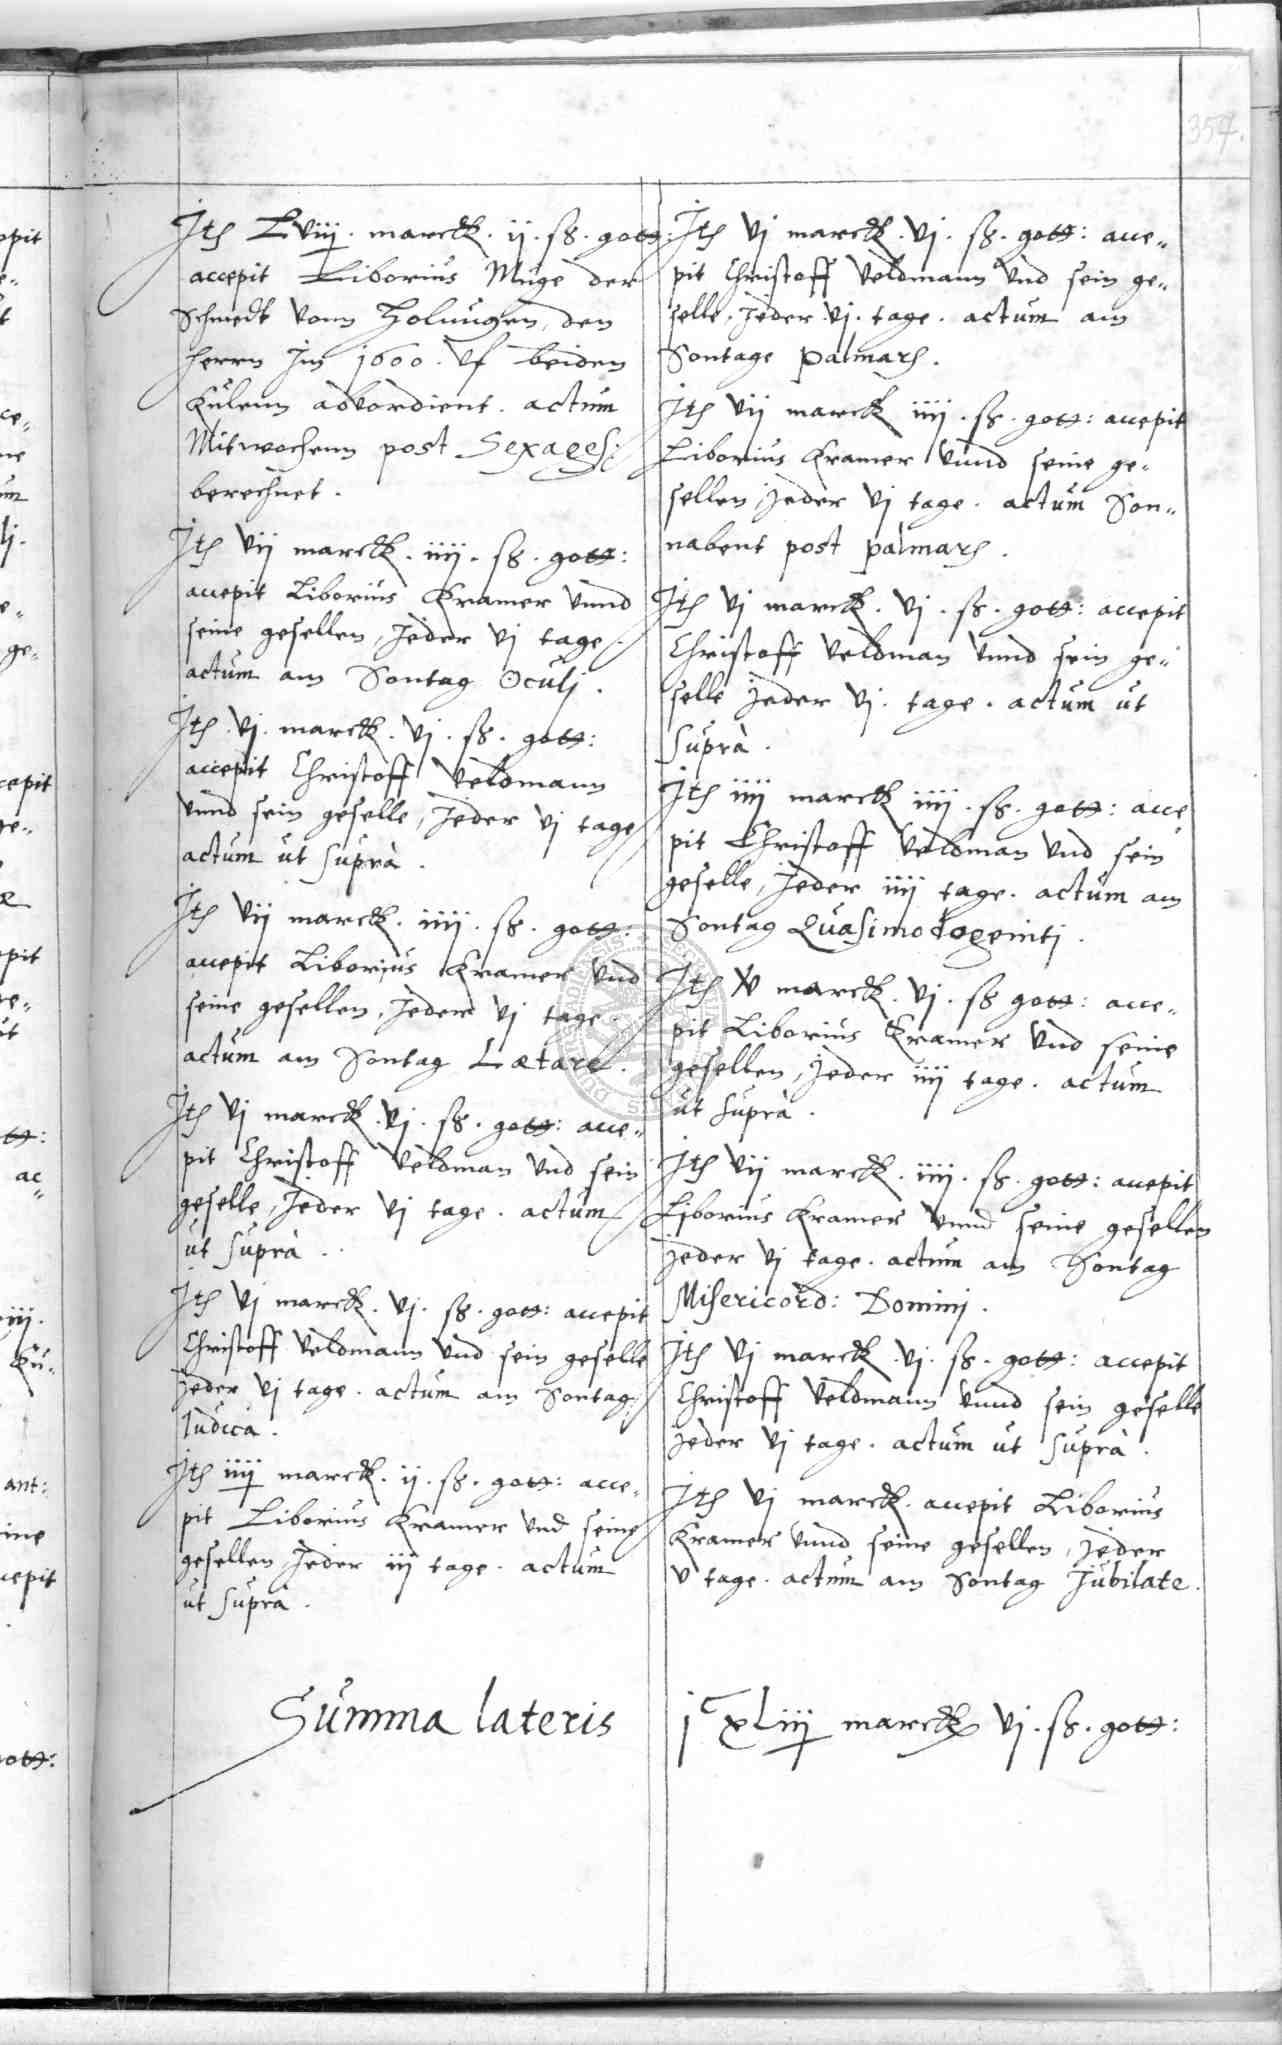 354.
Ite Lviij. marck. ij. ß. gott:
accepit Liborius Müge der
Schmedt vonn Holungen, den
herrn Im 1600. uf beiden
Kulenn abvordient. actum
Mitwochenn post Sexages:
berechnet.
Ite vij marck. iiij. ß. gott:
accepit Liborius Kramer unnd
seine gesellen, Jeder vj tage.
actum am Sontag Oculj.
Ite. vj. marck. vj. ß. gott:
accepit Christoff Veldmann
unnd sein geselle, Jeder vj tage
actum ut suprà.
Ite vij marck. iiij. ß. gott:
accepit Liborius Kramer und
seine gesellen, Jeder vj tage.
actum am Sontag Lætare.
Ite vj marck. vj. ß. gott: acce„
pit Christoff Veldman und sein
geselle, Jeder vj tage. actum
ut suprà.
Ite vj marck. vj. ß. gott: accepit
Christoff Veldmann und sein geselle
Jeder vj tage. actum am Sontag
Iudica.
Ite iiij marck. ij. ß. gott: acce„
pit Liborius Kramer und seine
gesellen, Jeder iij tage. actum
ut suprà.
Ite vj marck. vj. ß. gott: acce„
pit Christoff Veldmann und sein ge„
selle, Jeder vj. tage. actum am
Sontage Palmarum.
Ite vij marck iiij. ß. gott: accepit
Liborius Kramer unnd seine ge„
sellen, Jeder vj tage. actum Son„
nabent post palmarum.
Ite vj marck. vj. ß. gott: accepit
Christoff Veldman unnd sein ge„
selle Jeder vj. tage. actum ut
suprà.
Ite iiij marck iiij. ß. gott: acce
pit Christoff Veldman und sein
geselle, Jeder iiij tage. actum am
Sontag Quasimodogenitj.
Ite v marck. vj. ß gott: acce„
pit Liborius Kramer und seine
gesellen, Jeder iiij tage. actum
ut suprà.
Ite vij marck. iiij. ß. gott: accepit
Liborius Kramer unnd seine gesellen
Jeder vj tage. actum am Sontag
Misericord: Dominj.
Ite vj marck. vj. ß. gott: accepit
Christoff Veldmann unnd sein geselle
Jeder vj tage. actum ut suprà.
Ite vj marck. accepit Liborius
Kramer unnd seine gesellen, Jeder
v tage. actum am Sontag Jubilate.
Summa lateris j c xLiij marck vj. ß. gott: